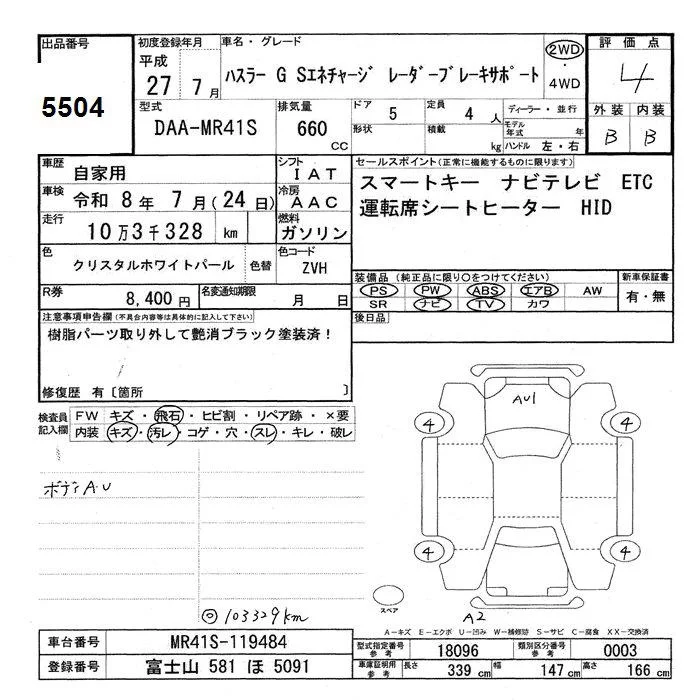 出品番号
5504
初度登録年月
平成
27 7月
車名・グレード
ハスラー G Sエネチャージ レーダーブレーキサポート
2WD
・
4WD
評価点
4
型式
DAA-MR41S
排気量
660
CC
ドア 5
定員 4 人
形状
積載 kg
ディーラー・並行
モデル年式 年
ハンドル 左・右
外装 内装
B B
車歴 自家用
シフト IAT
車検 令和 8年 7月(24日)
冷房 AAC
走行 10万3千328 km
燃料 ガソリン
色 クリスタルホワイトパール 色替
色コード ZVH
R券 8,400円
名変通知期限 月 日
セールスポイント(正常に機能するものに限ります)
スマートキー ナビテレビ ETC
運転席シートヒーター HID
装備品(純正品に限り○をつけてください)
PS PW ABS エアB AW
SR ナビ TV カワ
新車保証書
有・無
後日品
注意事項申告欄(不具合内容等は具体的に記入して下さい)
樹脂パーツ取り外して艶消ブラック塗装済!
修復歴 有〔箇所 〕
検査員記入欄
FW キズ・飛石・ヒビ割・リペア跡・×要
内装 キズ・汚レ・コゲ・穴・スレ・キレ・破レ
ボディA.U
AU1
4 4
4 4
スペア
A2
◎103329km
A-キズ E-エクボ U-凹み W-補修跡 S-サビ C-腐食 XX-交換済
車台番号 MR41S-119484
登録番号 富士山 581 ほ 5091
型式指定番号参考 18096
類別区分番号参考 0003
車庫証明用参考 長さ 339 cm 幅 147 cm 高さ 166 cm